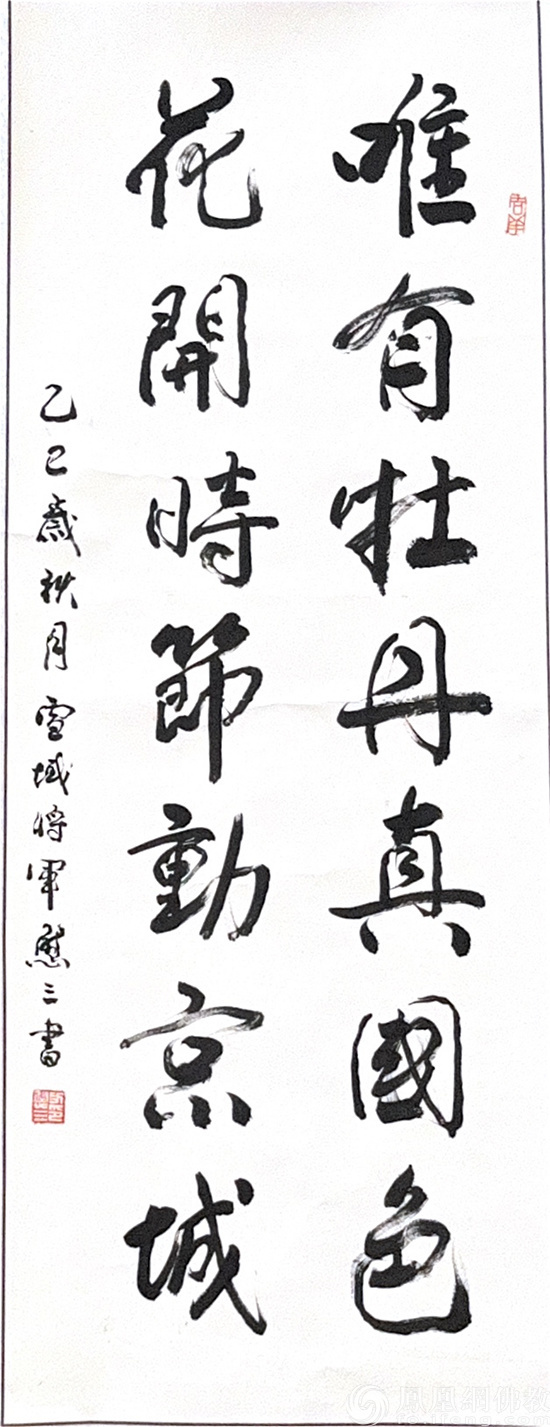 唯有牡丹真國色
花開時節動京城
乙巳歲秋月雪域將軍熊三書
凰凰網佛教